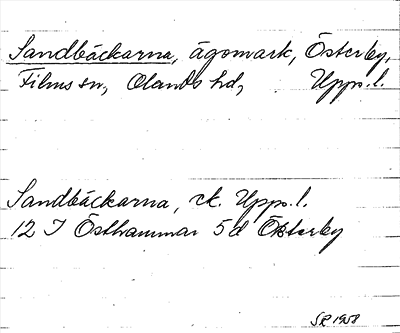 Sandbäckarna, ägomark, Österby,
Films sn, Olands hd, Upps. l.
Sandbäckarna, ek. Upps. l.
12 I Östhammar 5 d Österby
SR 1958